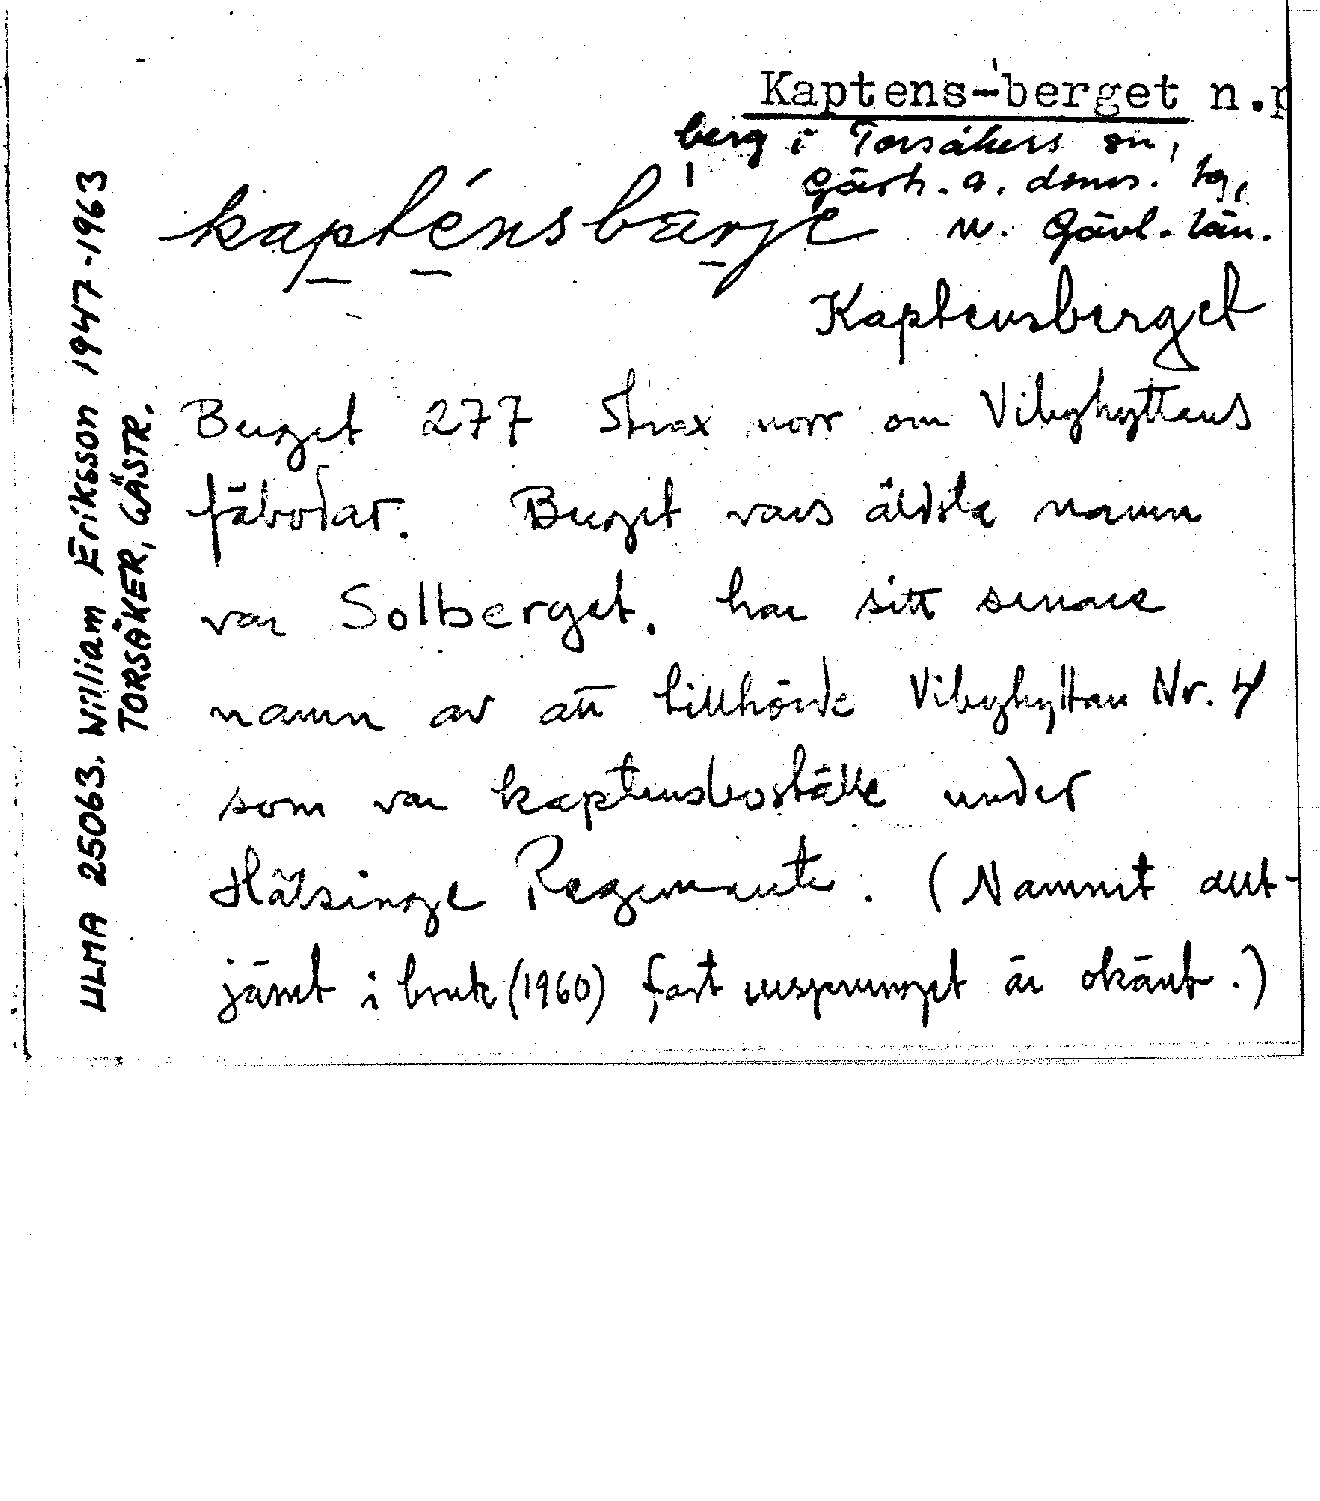 Kaptens-'berget n.p
berg i Torsåkers sn,
Gästr. a. doms. tg,
kapténsbärje w. Gävl. län.
Kaptensberget
Berget 277 Strax norr om Vibyhyttans
fäbodar. Berget vars äldsta namn
var Solberget. har sitt senare
namn av att tillhörde Vibyhyttan Nr. 4
som var kaptensboställe under
Hälsinge Regemente. (Namnet allt-
jämt i bruk (1960) fast ursprunget är okänt.)
ULMA 25063. William Eriksson 1947-1963
TORSÅKER, GÄSTR.